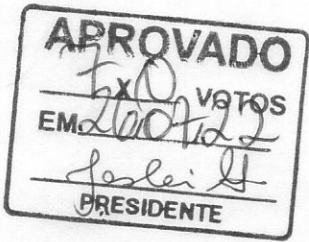 APROVADO
7x0 VOTOS
EM 26.07.22
PRESIDENTE